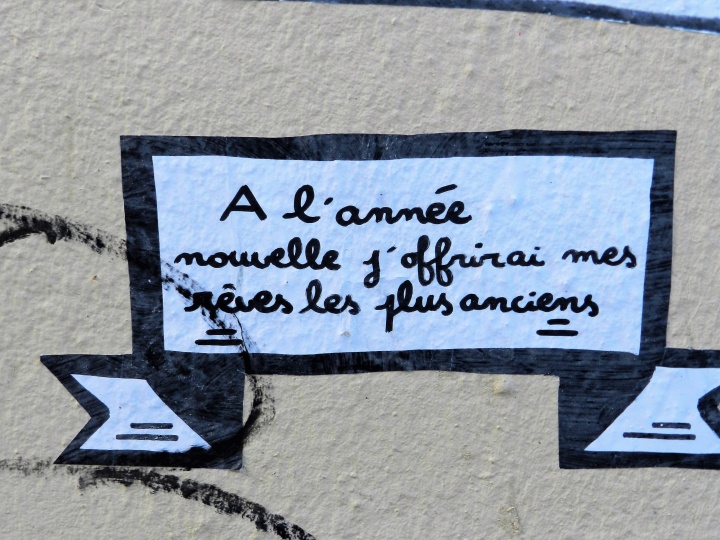 A l'année
nouvelle j'offrirai mes
rêves les plus anciens